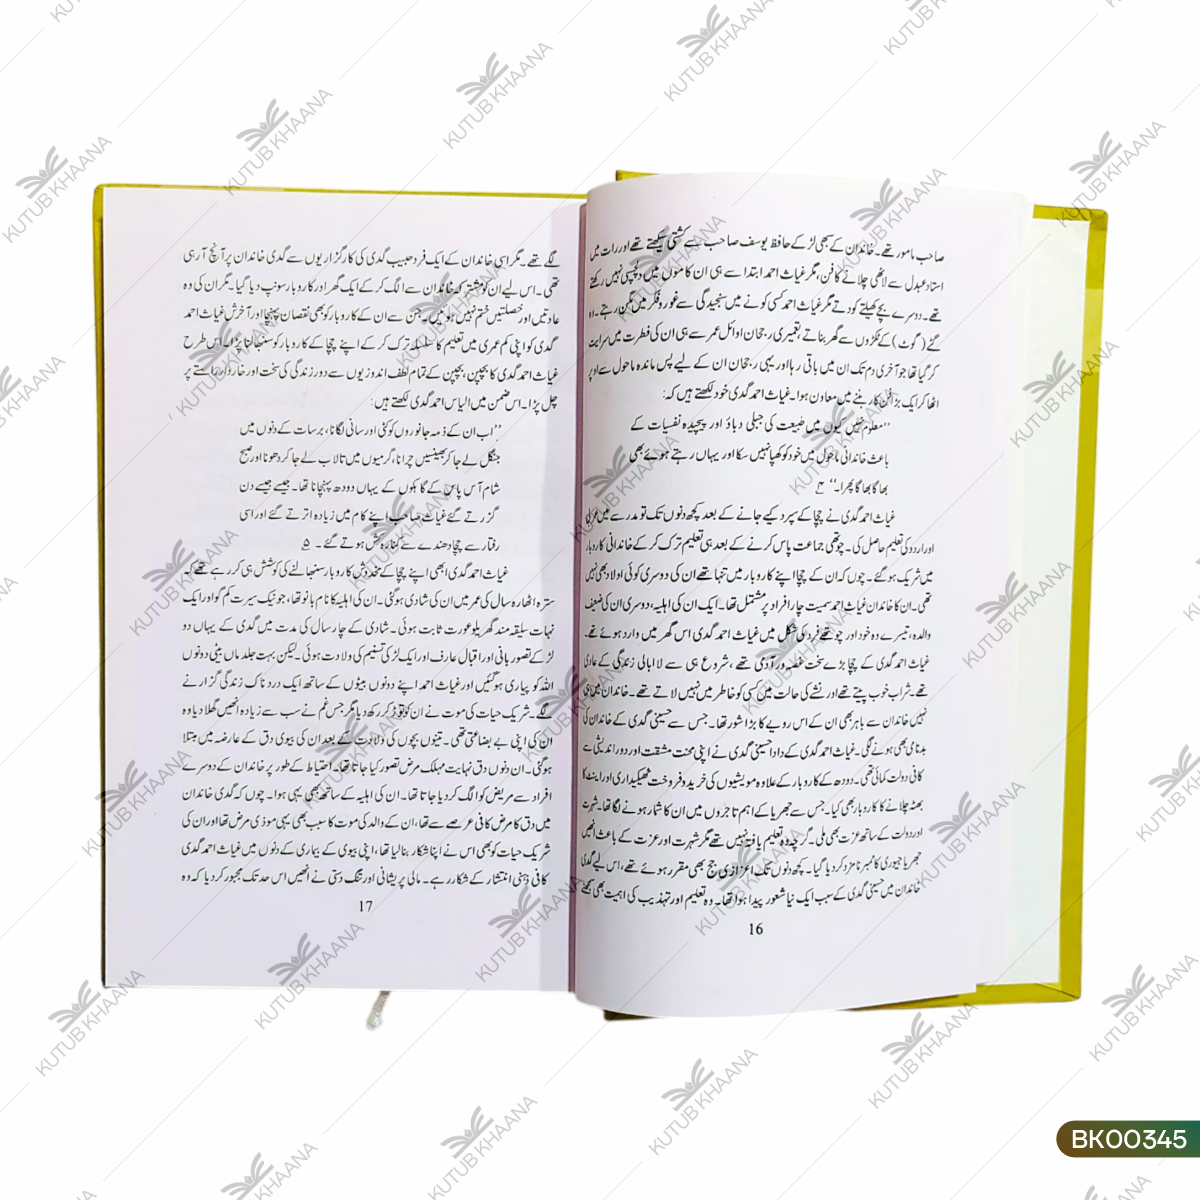 صاحب مامور تھے۔ خاندان کے سبھی لڑکے حافظ یوسف صاحب سے کشتی سیکھتے تھے اور رات میں
استاد عبدل سے لاٹھی چلانے کا فن، مگر غیاث احمد ابتدا سے ہی ان کاموں میں دلچسپی نہیں رکھتے
تھے۔ دوسرے بچے کھیلتے کودتے مگر غیاث احمد کسی کونے میں سنجیدگی سے غور و فکر میں مگن رہتے۔ وہ
گتے (گوٹ) کے ٹکڑوں سے گھر بناتے تعمیری رجحان اوائل عمر سے ہی ان کی فطرت میں سرایت
کر گیا تھا جو آخری دم تک ان میں باقی رہا اور یہی رجحان ان کے لیے پس ماندہ ماحول سے اوپر
اٹھا کر ایک بڑا فن کار بننے میں معاون ہوا۔ غیاث احمد گدی خود لکھتے ہیں کہ:
”معلوم نہیں کیوں میں طبیعت کی جبلی دباؤ اور پیچیدہ نفسیات کے
باعث خاندانی ماحول میں خود کو کھپا نہیں سکا اور یہاں رہتے ہوئے بھی
بھاگا بھاگا پھرا۔“ ۴
غیاث احمد گدی نے چچا کے سپرد کیے جانے کے بعد کچھ دنوں تک تو مدرسے میں عربی
اور اردو کی تعلیم حاصل کی۔ چوتھی جماعت پاس کرنے کے بعد ہی تعلیم ترک کر کے خاندانی کاروبار
میں شریک ہو گئے۔ چوں کہ ان کے چچا اپنے کاروبار میں تنہا تھے ان کی دوسری کوئی اولاد بھی نہیں
تھی۔ ان کا خاندان غیاث احمد سمیت چار افراد پر مشتمل تھا۔ ایک ان کی اہلیہ، دوسری ان کی ضعیف
والدہ، تیسرے وہ خود اور چوتھے فرد کی شکل میں غیاث احمد گدی اس گھر میں وارد ہوئے تھے۔
غیاث احمد گدی کے چچا بڑے سخت غصہ ور آدمی تھے، شروع ہی سے لاابالی زندگی کے عادی
تھے۔ شراب خوب پیتے تھے اور نشے کی حالت میں کسی کو خاطر میں نہیں لاتے تھے۔ خاندان میں ہی
نہیں خاندان سے باہر بھی ان کے اس رویے کا بڑا شور تھا۔ جس سے حسینی گدی کے خاندان کی
بدنامی بھی ہونے لگی۔ غیاث احمد گدی کے دادا حسینی گدی نے اپنی محنت مشقت اور دور اندیشی سے
کافی دولت کمائی تھی۔ دودھ کے کاروبار کے علاوہ مویشیوں کی خرید و فروخت ٹھیکیداری اور اینٹ کا
بھٹہ چلانے کا کاروبار بھی کیا۔ جس سے جھریا کے اہم تاجروں میں ان کا شمار ہونے لگا تھا۔ شہرت
اور دولت کے ساتھ عزت بھی ملی۔ گرچہ وہ تعلیم یافتہ نہیں تھے مگر شہرت اور عزت کے باعث انھیں
جھریا جیوری کا ممبر نامزد کر دیا گیا۔ کچھ دنوں تک اعزازی جج بھی مقرر ہوئے تھے، اس لیے گدی
خاندان میں حسینی گدی کے سبب ایک نیا شعور پیدا ہوا تھا۔ وہ تعلیم اور تہذیب کی اہمیت بھی سمجھنے
16
لگے تھے۔ مگر اسی خاندان کے ایک فرد حبیب گدی کی کارگزاریوں سے گدی خاندان پر آنچ آ رہی
تھی۔ اس لیے ان کو مشترکہ خاندان سے الگ کر کے ایک گھر اور کاروبار سونپ دیا گیا۔ مگر ان کی وہ
عادتیں اور خصلتیں ختم نہیں ہوئیں۔ جن سے ان کے کاروبار کو بھی نقصان پہنچا اور آخرش غیاث احمد
گدی کو اپنی کم عمری میں تعلیم کا سلسلہ ترک کر کے اپنے چچا کے کاروبار کو سنبھالنا پڑا۔ اس طرح
غیاث احمد گدی کا بچپن، بچپن کے تمام لطف اندوزیوں سے دور زندگی کی سخت اور خاردار راستے پر
چل پڑا۔ اس ضمن میں الیاس احمد گدی لکھتے ہیں:
”اب ان کے ذمہ جانوروں کو کٹی اور سانی لگانا، برسات کے دنوں میں
جنگل لے جا کر بھینسیں چرانا، گرمیوں میں تالاب لے جا کر دھونا اور صبح
شام آس پاس کے گاہکوں کے یہاں دودھ پہنچانا تھا۔ جیسے جیسے دن
گزرتے گئے غیاث صاحب اپنے کام میں زیادہ اترتے گئے اور اسی
رفتار سے چچا دھندے سے کنارہ کش ہوتے گئے۔ ۵
غیاث احمد گدی ابھی اپنے چچا کے مخدوش کاروبار سنبھالنے کی کوشش ہی کر رہے تھے کہ
سترہ اٹھارہ سال کی عمر میں ان کی شادی ہو گئی۔ ان کی اہلیہ کا نام بانو تھا، جو نیک سیرت کم گو اور ایک
نہایت سلیقہ مند گھریلو عورت ثابت ہوئی۔ شادی کے چار سال کی مدت میں گدی کے یہاں دو
لڑکے تصور ہانی اور اقبال عارف اور ایک لڑکی تسنیم کی ولادت ہوئی۔ لیکن بہت جلد ماں بیٹی دونوں
اللہ کو پیاری ہو گئیں اور غیاث احمد اپنے دونوں بیٹوں کے ساتھ ایک درد ناک زندگی گزارنے
لگے۔ شریک حیات کی موت نے ان کو توڑ کر رکھ دیا مگر جس غم نے سب سے زیادہ انھیں گھلا دیا وہ
ان کی اپنی بے بضاعتی تھی۔ تینوں بچوں کی ولادت کے بعد ان کی بیوی دق کے عارضہ میں مبتلا
ہو گئی۔ ان دنوں دق نہایت مہلک مرض تصور کیا جاتا تھا۔ احتیاط کے طور پر خاندان کے دوسرے
افراد سے مریض کو الگ کر دیا جاتا تھا۔ ان کی اہلیہ کے ساتھ بھی یہی ہوا۔ چوں کہ گدی خاندان
میں دق کا مرض کافی عرصے سے تھا، ان کے والد کی موت کا سبب بھی یہی موذی مرض تھا اور ان کی
شریک حیات کو بھی اس نے اپنا شکار بنا لیا تھا، اپنی بیوی کے بیماری کے دنوں میں غیاث احمد گدی
کافی ذہنی انتشار کے شکار رہے۔ مالی پریشانی اور تنگ دستی نے انھیں اس حد تک مجبور کر دیا کہ وہ
17
KUTUB KHAANA
BK00345